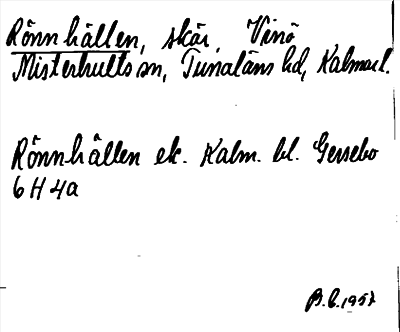 Rönnhällen, skär, Vinö
Misterhults sn, Tunaläns hd, Kalmar l.
Rönnhällen ek. Kalm. bl. Gersebo
6 H 4a
B.L. 1957